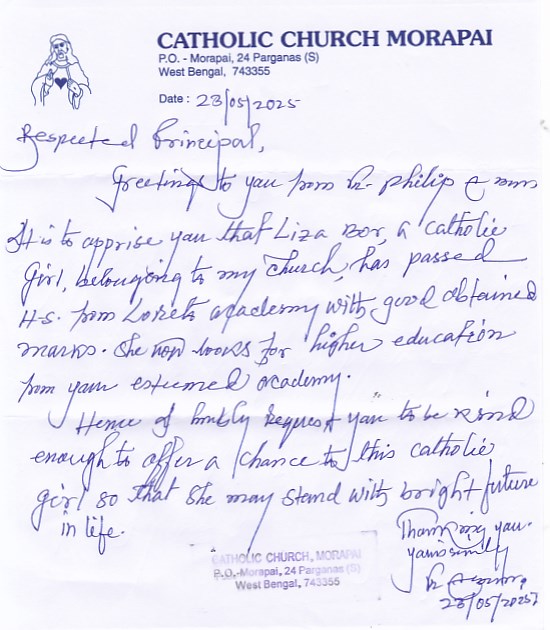 CATHOLIC CHURCH MORAPAI
P.O. - Morapai, 24 Parganas (S)
West Bengal, 743355
Date : 23/05/2025
Respected Principal,
Greetings to you from Fr. Philip
It is to apprise you that Liza Bor, a catholic
Girl, belonging to my Church, has passed
H.S. from Loreto academy with good obtained
marks. She now looks for higher education
from your estumed academy.
Hence I humbly request you to be kind
enough to offer a chance to this catholic
girl so that she may stand with bright future
in life.
Thanking you.
CATHOLIC CHURCH, MORAPAI
P.O.-Morapai, 24 Parganas (S)
West Bengal, 743355
23/05/2025